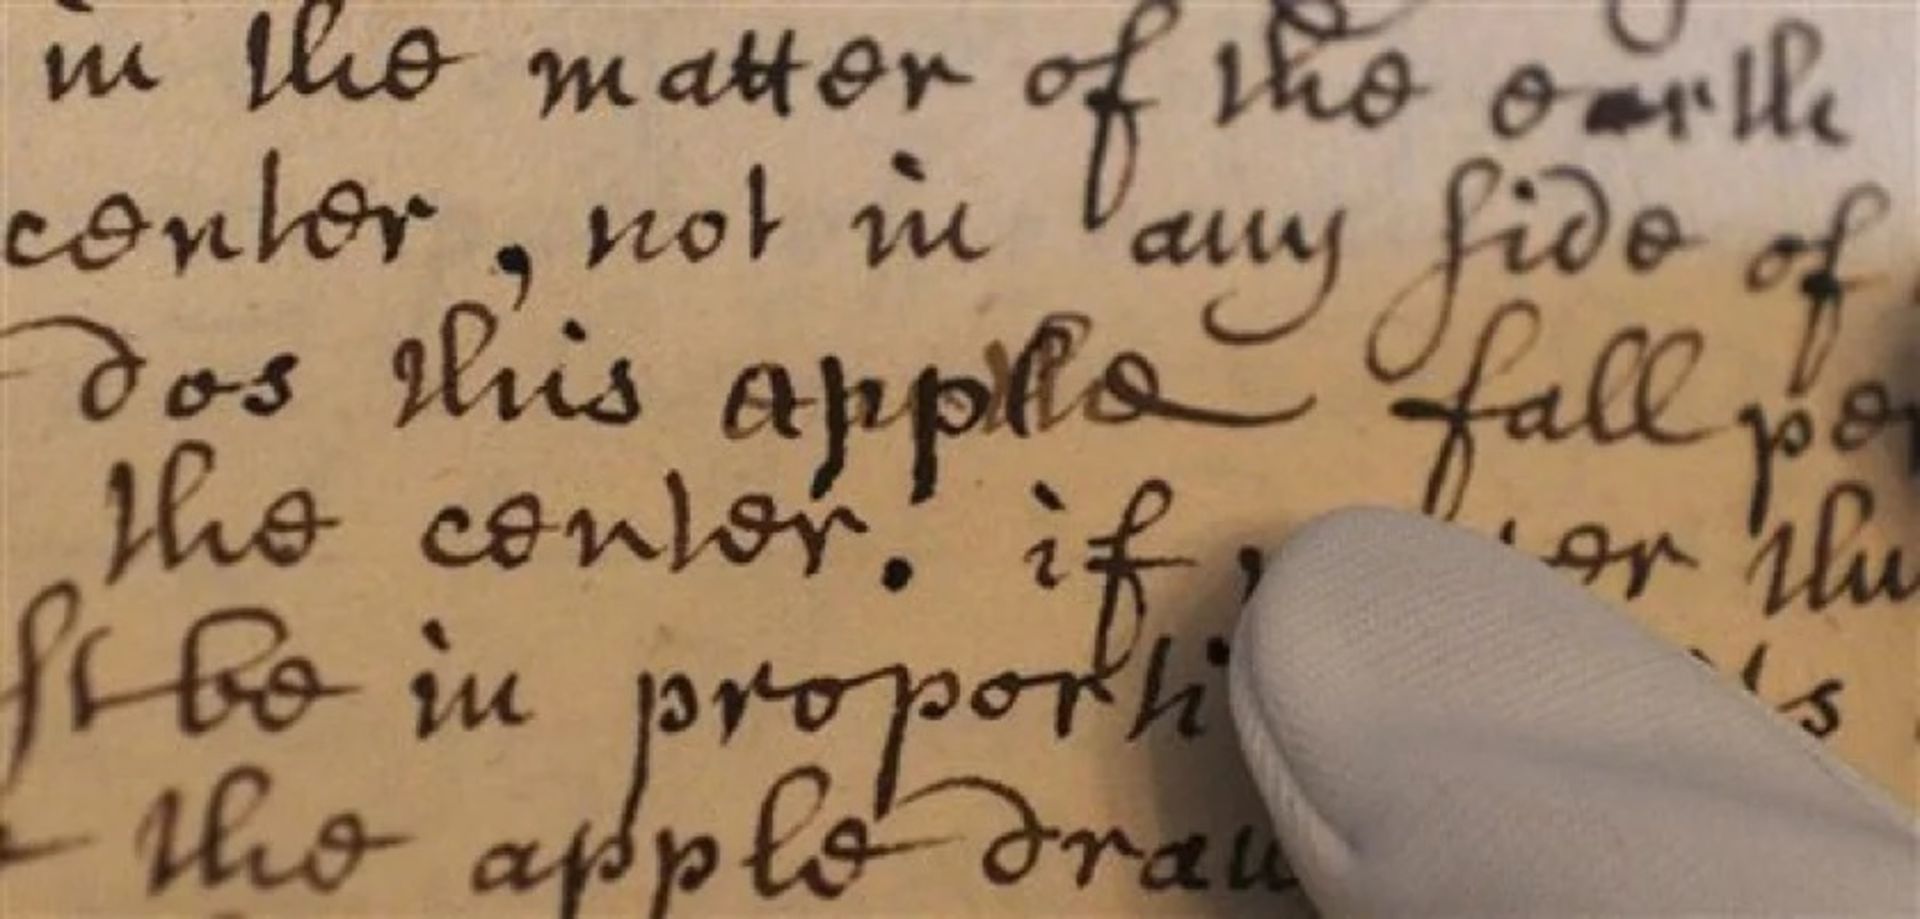 in the matter of the earth
center, not in any side of
dos this apple fall per
the center. if
st be in proporti
the apple draw